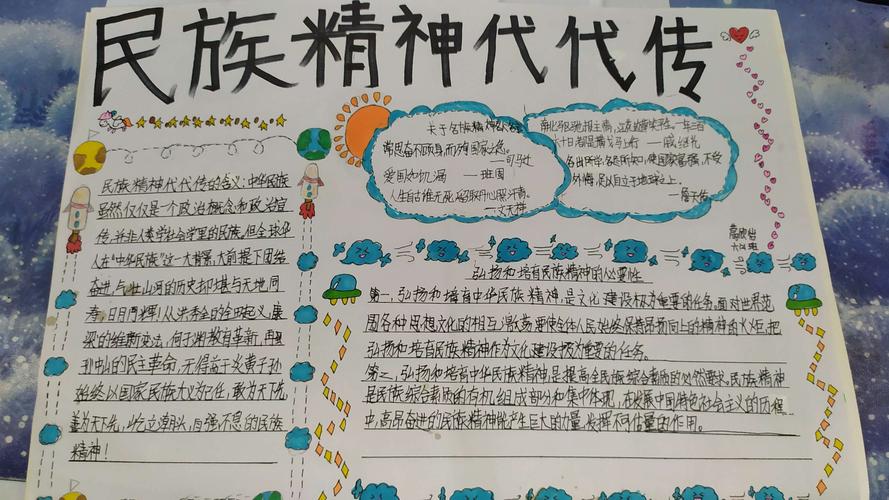 民族精神代代传
民族精神代代传的含义:中华民族
虽然仅仅是一个政治概念和政治宣
传,并非人类学社会学里的民族。但全球华
人在“中华民族”这一大背景,大前提下团结
奋进,与壮山河的历史却堪与天地同
寿,日月同辉!从洪秀全的金田起义,康
梁的维新变法,何于渊教育革新,再到
孙中山的民主革命,无得益于炎黄子孙
始终以国家民族大义为己任,敢为天下先,
善为天下先,屹立潮头,自强不息的民族
精神!
关于名族精神的名言
常思奋不顾身,而殉国家之急。
——司马迁
爱国如饥渴 ——班固
人生自古谁无死,留取丹心照汗青。
——文天祥
南北驱驰报主情,江花边草笑平生。一年三百
六十日,都是横戈马上行 ——戚继光
各出所学,各尽所知,使国家富强,不受
外侮,足以自立于地球之上。
——詹天佑
弘扬和培育民族精神的必要性
第一,弘扬和培育中华民族精神,是文化建设极为重要的任务。面对世界范
围各种思想文化的相互激荡,要使全体人民始终保持昂扬向上的精神的火炬,把
弘扬和培育民族精神作为文化建设极为重要的任务。
第二,弘扬和培育中华民族精神,是提高全民族综合素质的必然要求。民族精神
是民族综合素质的有机组成部分和集中体现,在发展中国特色社会主义的历程
中,高昂奋进的民族精神能产生巨大的力量,发挥不可估量的作用。